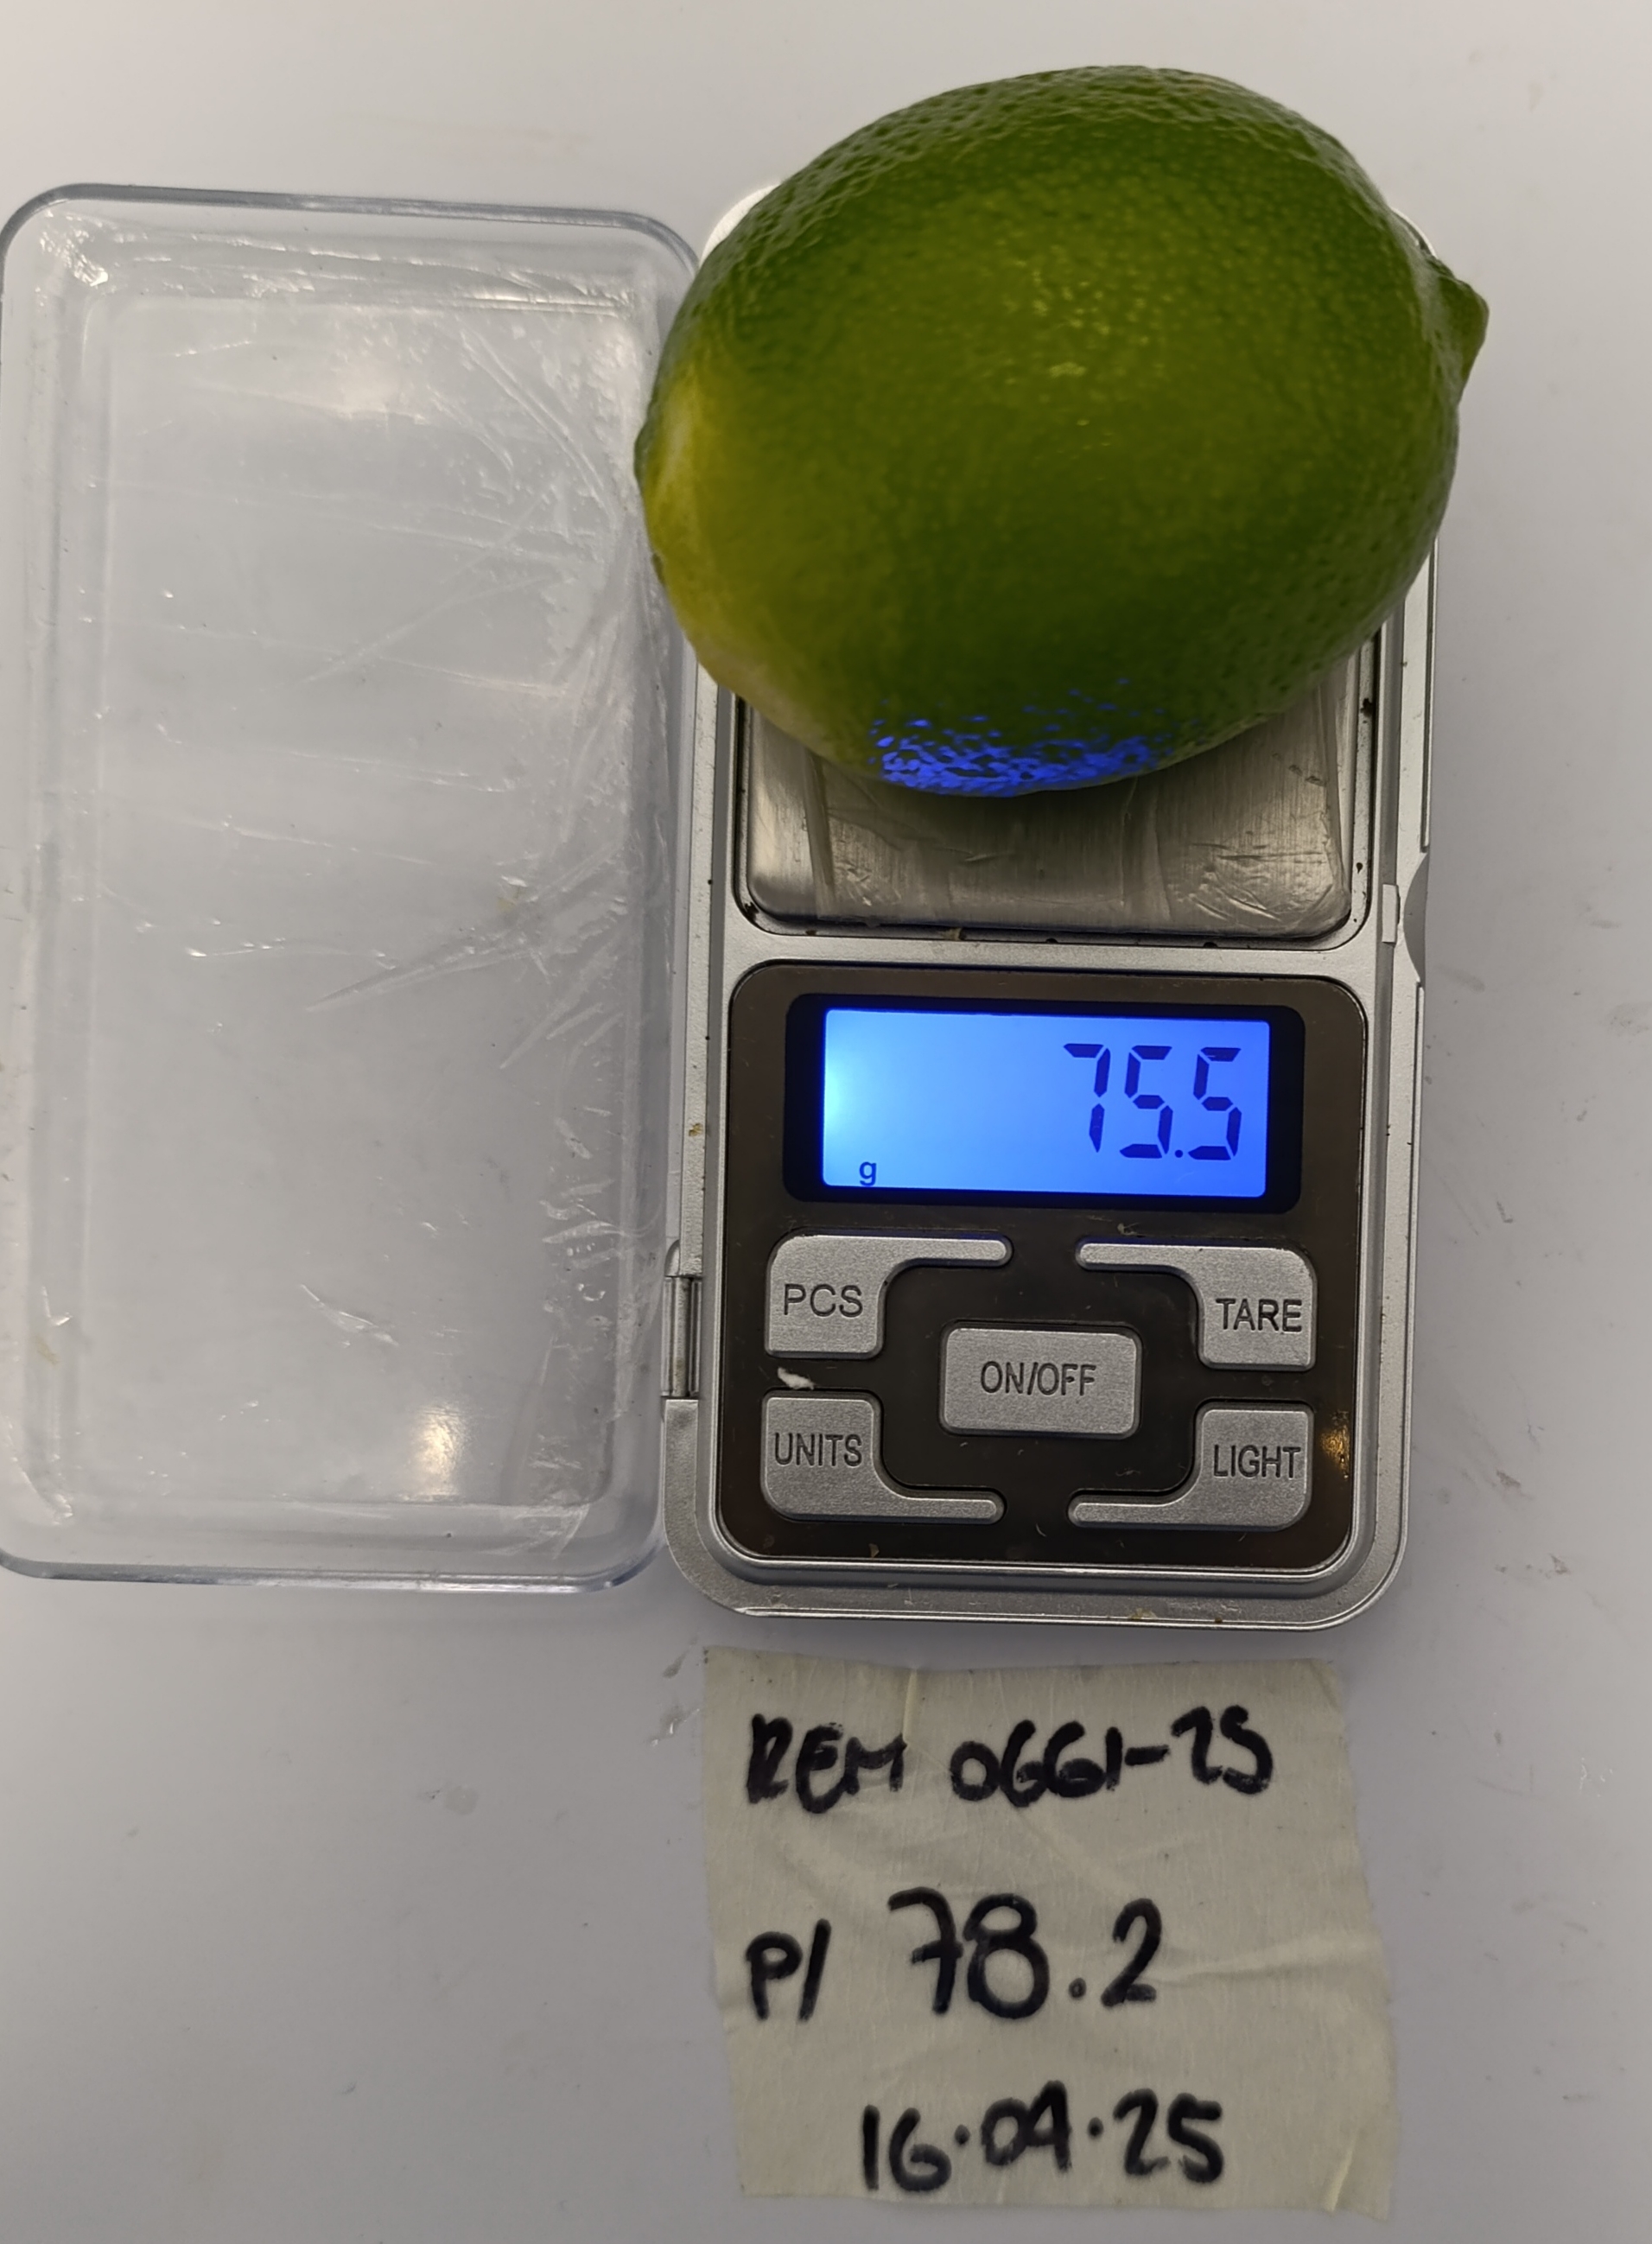 75.5
g
PCS
TARE
ON/OFF
UNITS
LIGHT
REM 0661-25
P/ 78.2
16.04.25